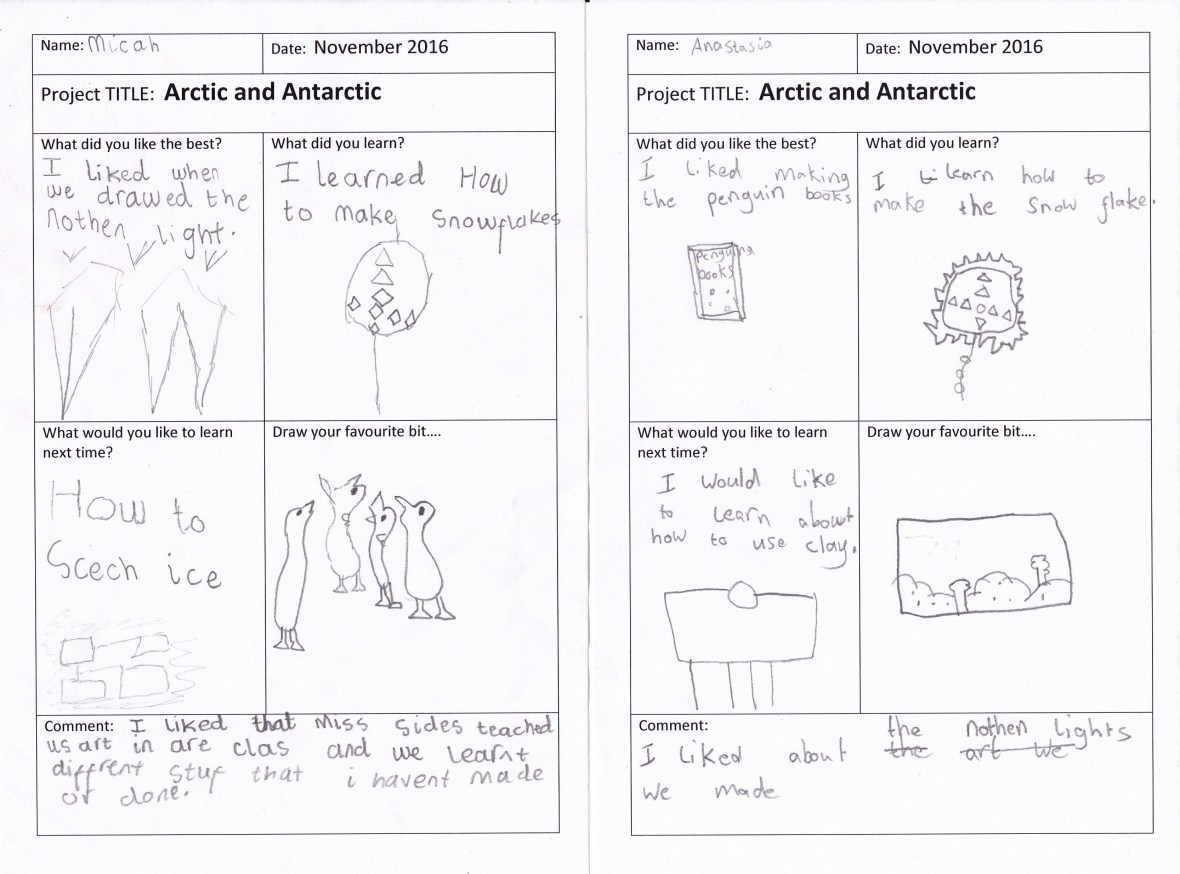 Name: Micah
Date: November 2016
Project TITLE: Arctic and Antarctic
What did you like the best?
I liked when
we drawed the
nothen light.
What did you learn?
I learned How
to make snowflakes
What would you like to learn
next time?
How to
Scech ice
Draw your favourite bit....
Comment: I liked that Miss Sides teached
us art in are clas and we learnt
diffrent stuf that i havent made
or done.
Name: Anastasia
Date: November 2016
Project TITLE: Arctic and Antarctic
What did you like the best?
I liked making
the penguin books
Penguins
books
What did you learn?
I learn how to
make the snow flake.
What would you like to learn
next time?
I would like
to learn aboawt
how to use clay.
Draw your favourite bit....
Comment:
the nothen lights
I liked about the art we
we made